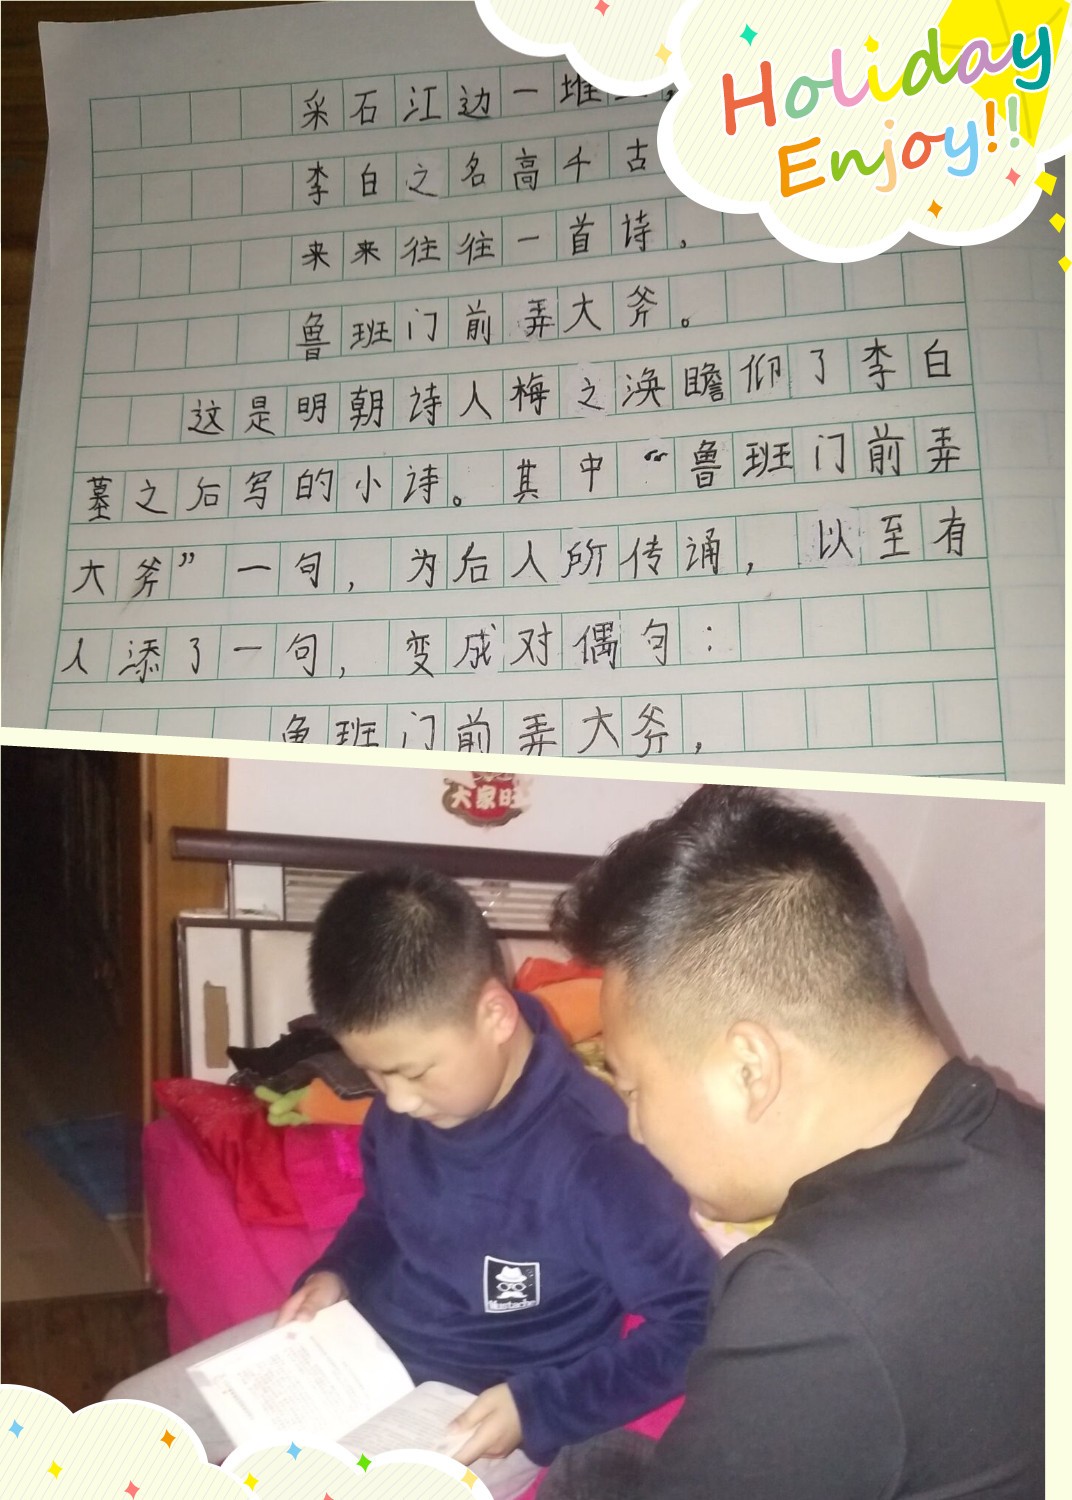 Holiday
Enjoy!!
采石江边一堆
李白之名高千古
来来往往一首诗。
鲁班门前弄大斧。
这是明朝诗人梅之涣瞻仰了李白
墓之后写的小诗。其中“鲁班门前弄
大斧”一句，为后人所传诵，以至有
人添了一句，变成对偶句：
鲁班门前弄大斧，
大家旺
Mustache